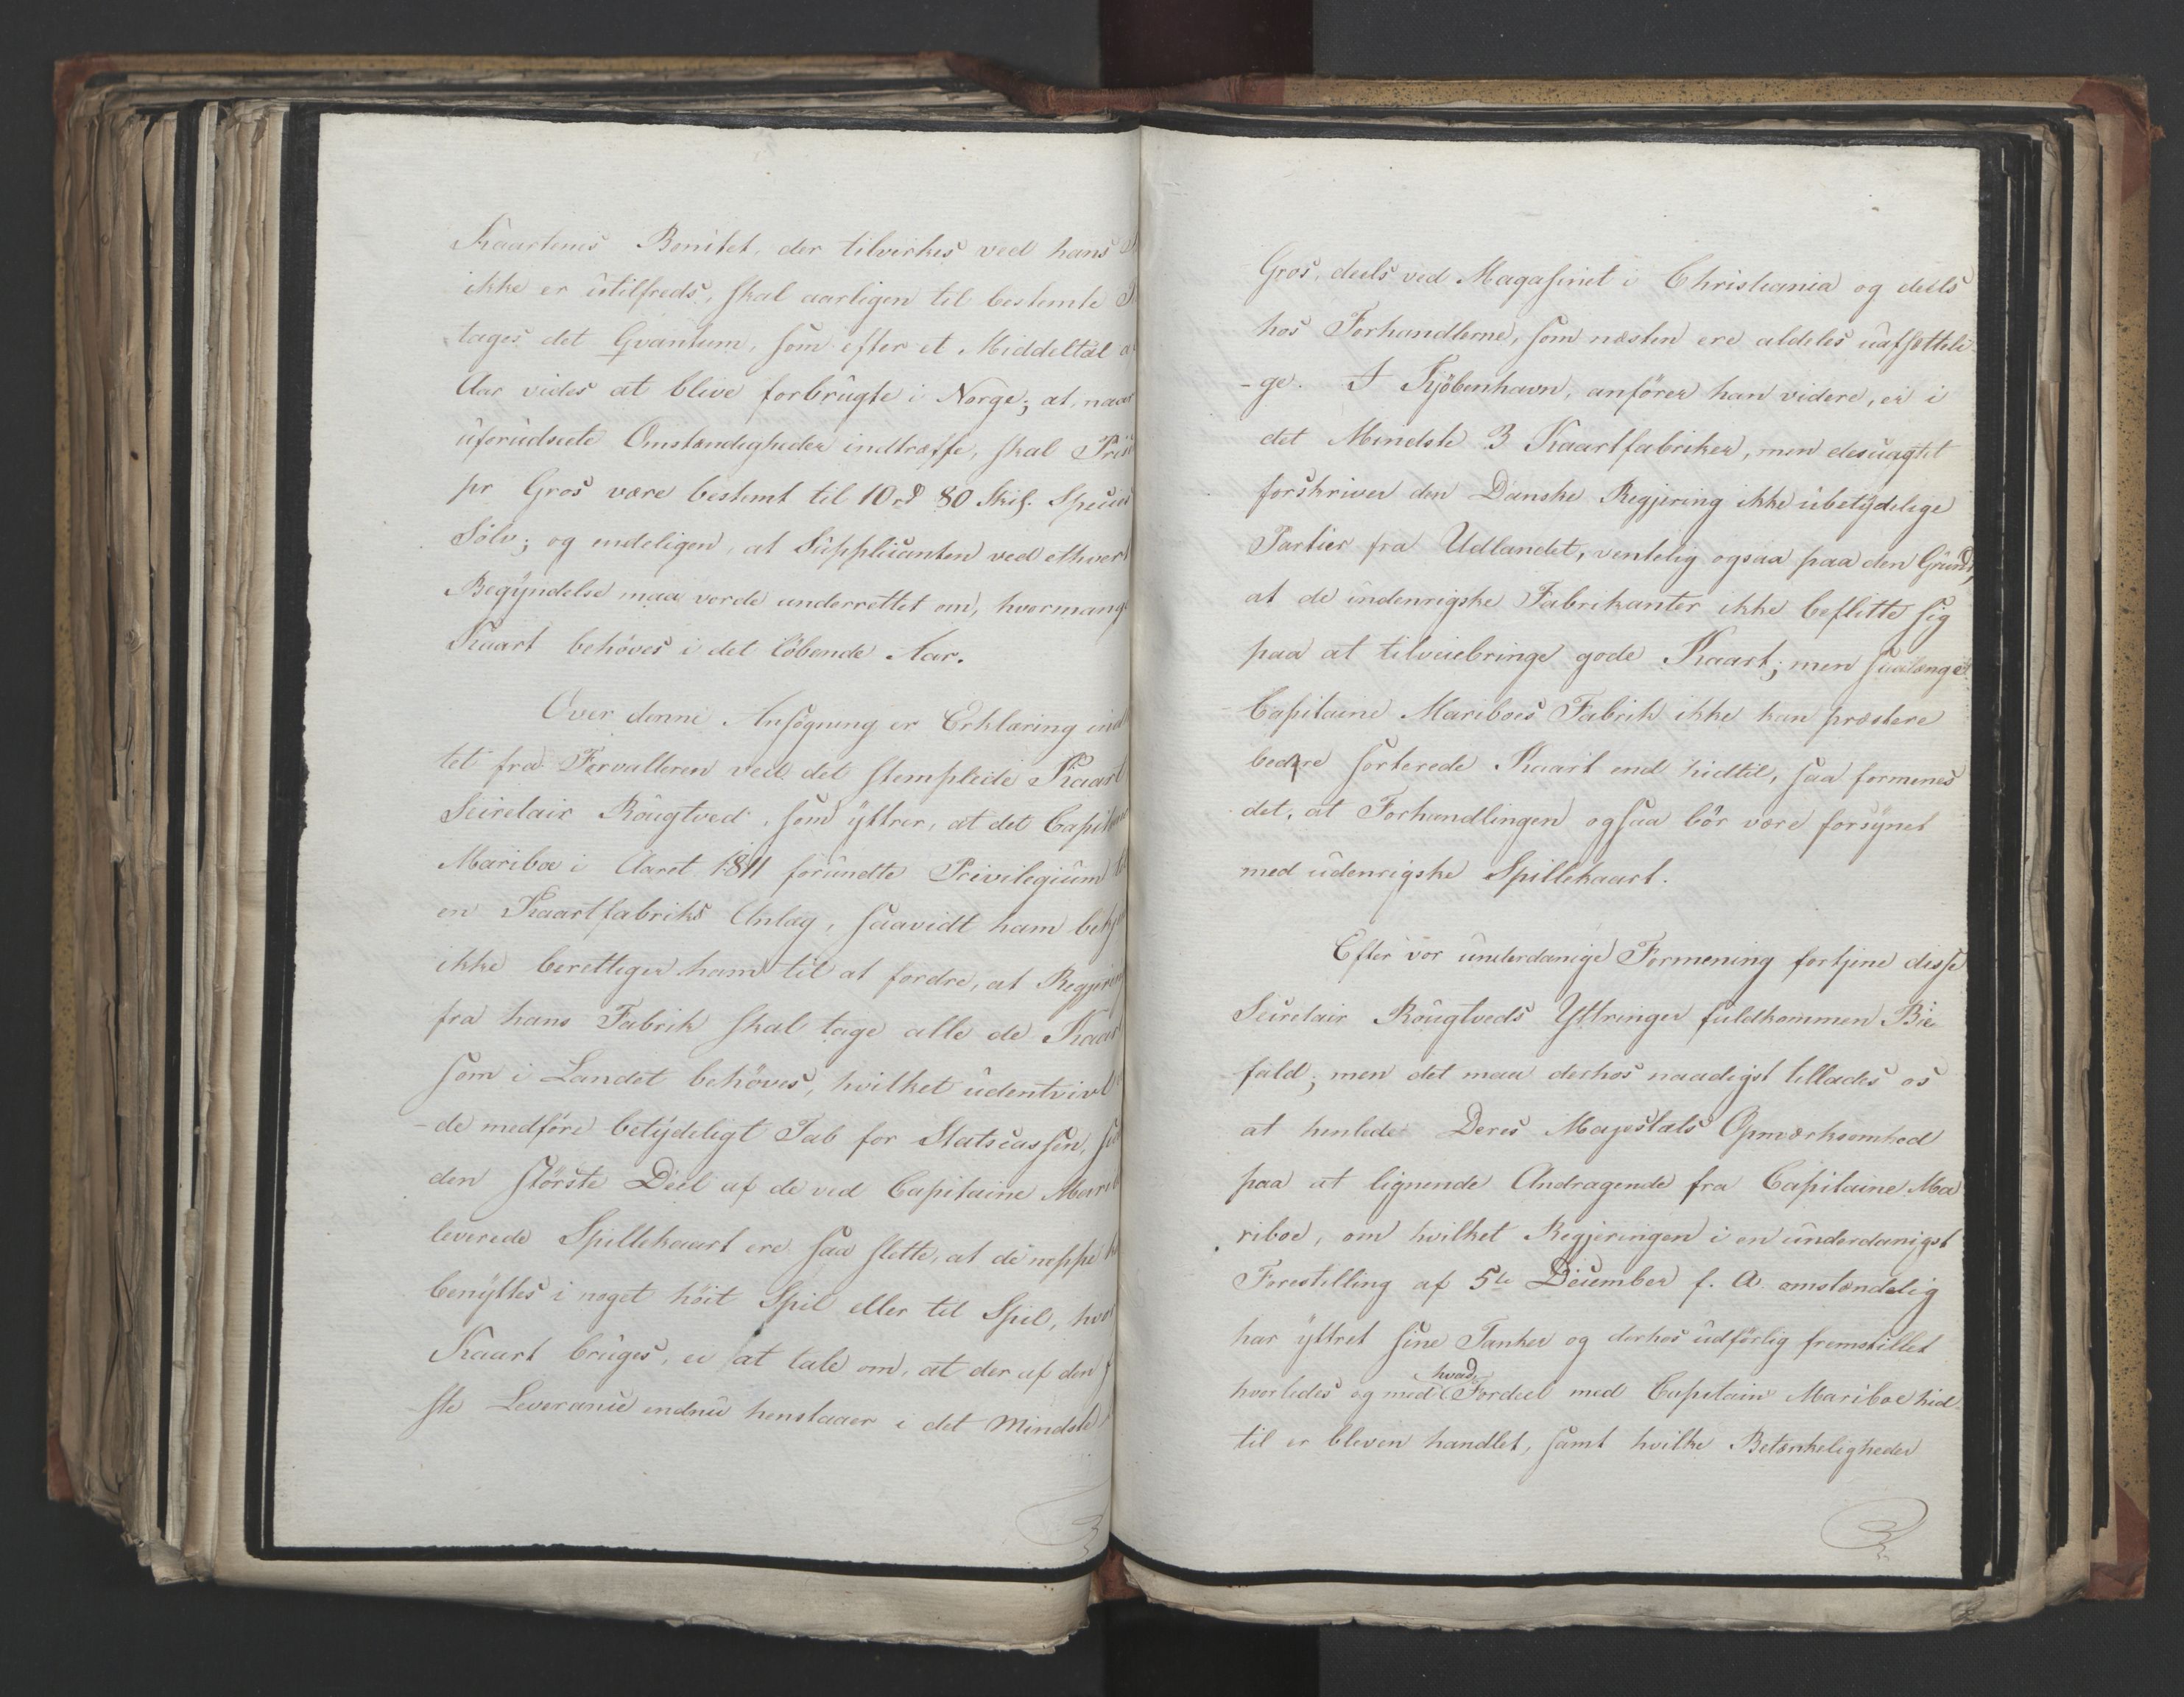 Kaartenes Bonitet, der tilvirkes ved hans
ikke er utilfreds, skal aarligen til bestemte
tages det Qvantum, som efter et Middeltal
Aar vides at blive forbrugte i Norge; at, naar
uforudseete Omstændigheder indtræffe, skal Pris
pr Gros være bestemt til 10 rd 80 Skil. Specie
Sölv; og endeligen, at Supplicanten ved ethvert
Begyndelse maa vorde underrettet om, hvormange
Kaart behöves i det löbende Aar.
Over denne Ansögning er Erklæring ind
tet fra Forvalteren ved det stemplede Kaart
Secretair Rougtved, som yttrer, at det Capitaine
Mariboe i Aaret 1811 forundte Privilegium
en Kaartfabriks Anlæg, saavidt ham bekj
ikke berettiger ham til at fordre, at Regjering
fra hans Fabrik skal tage alle de Kaart
som i Landet behöves, hvilket udentvivl
-de medföre betydeligt Tab for Statscassen,
den störste Deel af de ved Capitaine Marib
leverede Spillekaart ere saa slette, at de neppe
benyttes i noget höit Spil eller til Spil, hvor
Kaart bruges, ei at tale om, at der af den
ste Leverance endnu henstaaer i det Mindste
Gros, deels ved Magasinet i Christiania og deels
hos Forhandlerne, som næsten ere aldeles uafsætteli
-ge. I Kjöbenhavn, anförer han videre, er i
det Mindste 3 Kaartfabriker, men desuagtet
forskriver den Danske Regjering ikke ubetydelige
Partier fra Udlandet, ventelig ogsaa paa den Grund,
at de indenrigske Fabrikanter ikke beflitte sig
paa at tilveiebringe gode Kaart; men saalænge
Capitaine Mariboes Fabrik ikke kan præstere
bedre sorterede Kaart end hidtil, saa formenes
det, at Forhandlingen ogsaa bör være forsynet
med udenrigske Spillekaart.
Efter vor underdanige Formening fortjene disse
Secretair Rougtveds Yttringer fuldkommen Bie
fald; men det maa derhos naadigst tillades os
at henlede Deres Majestæts Opmærksomhed
paa at lignende Andragende fra Capitaine Ma
riboe, om hvilket Regjeringen i en underdanigst
Forestilling af 5te December f. A. omstændelig
har yttret sine Tanker og derhos udförlig fremstillet
hvorledes og med hvad Fordeel med Capitain Mariboe hid
til er bleven handlet, samt hvilke Betænkeligheder